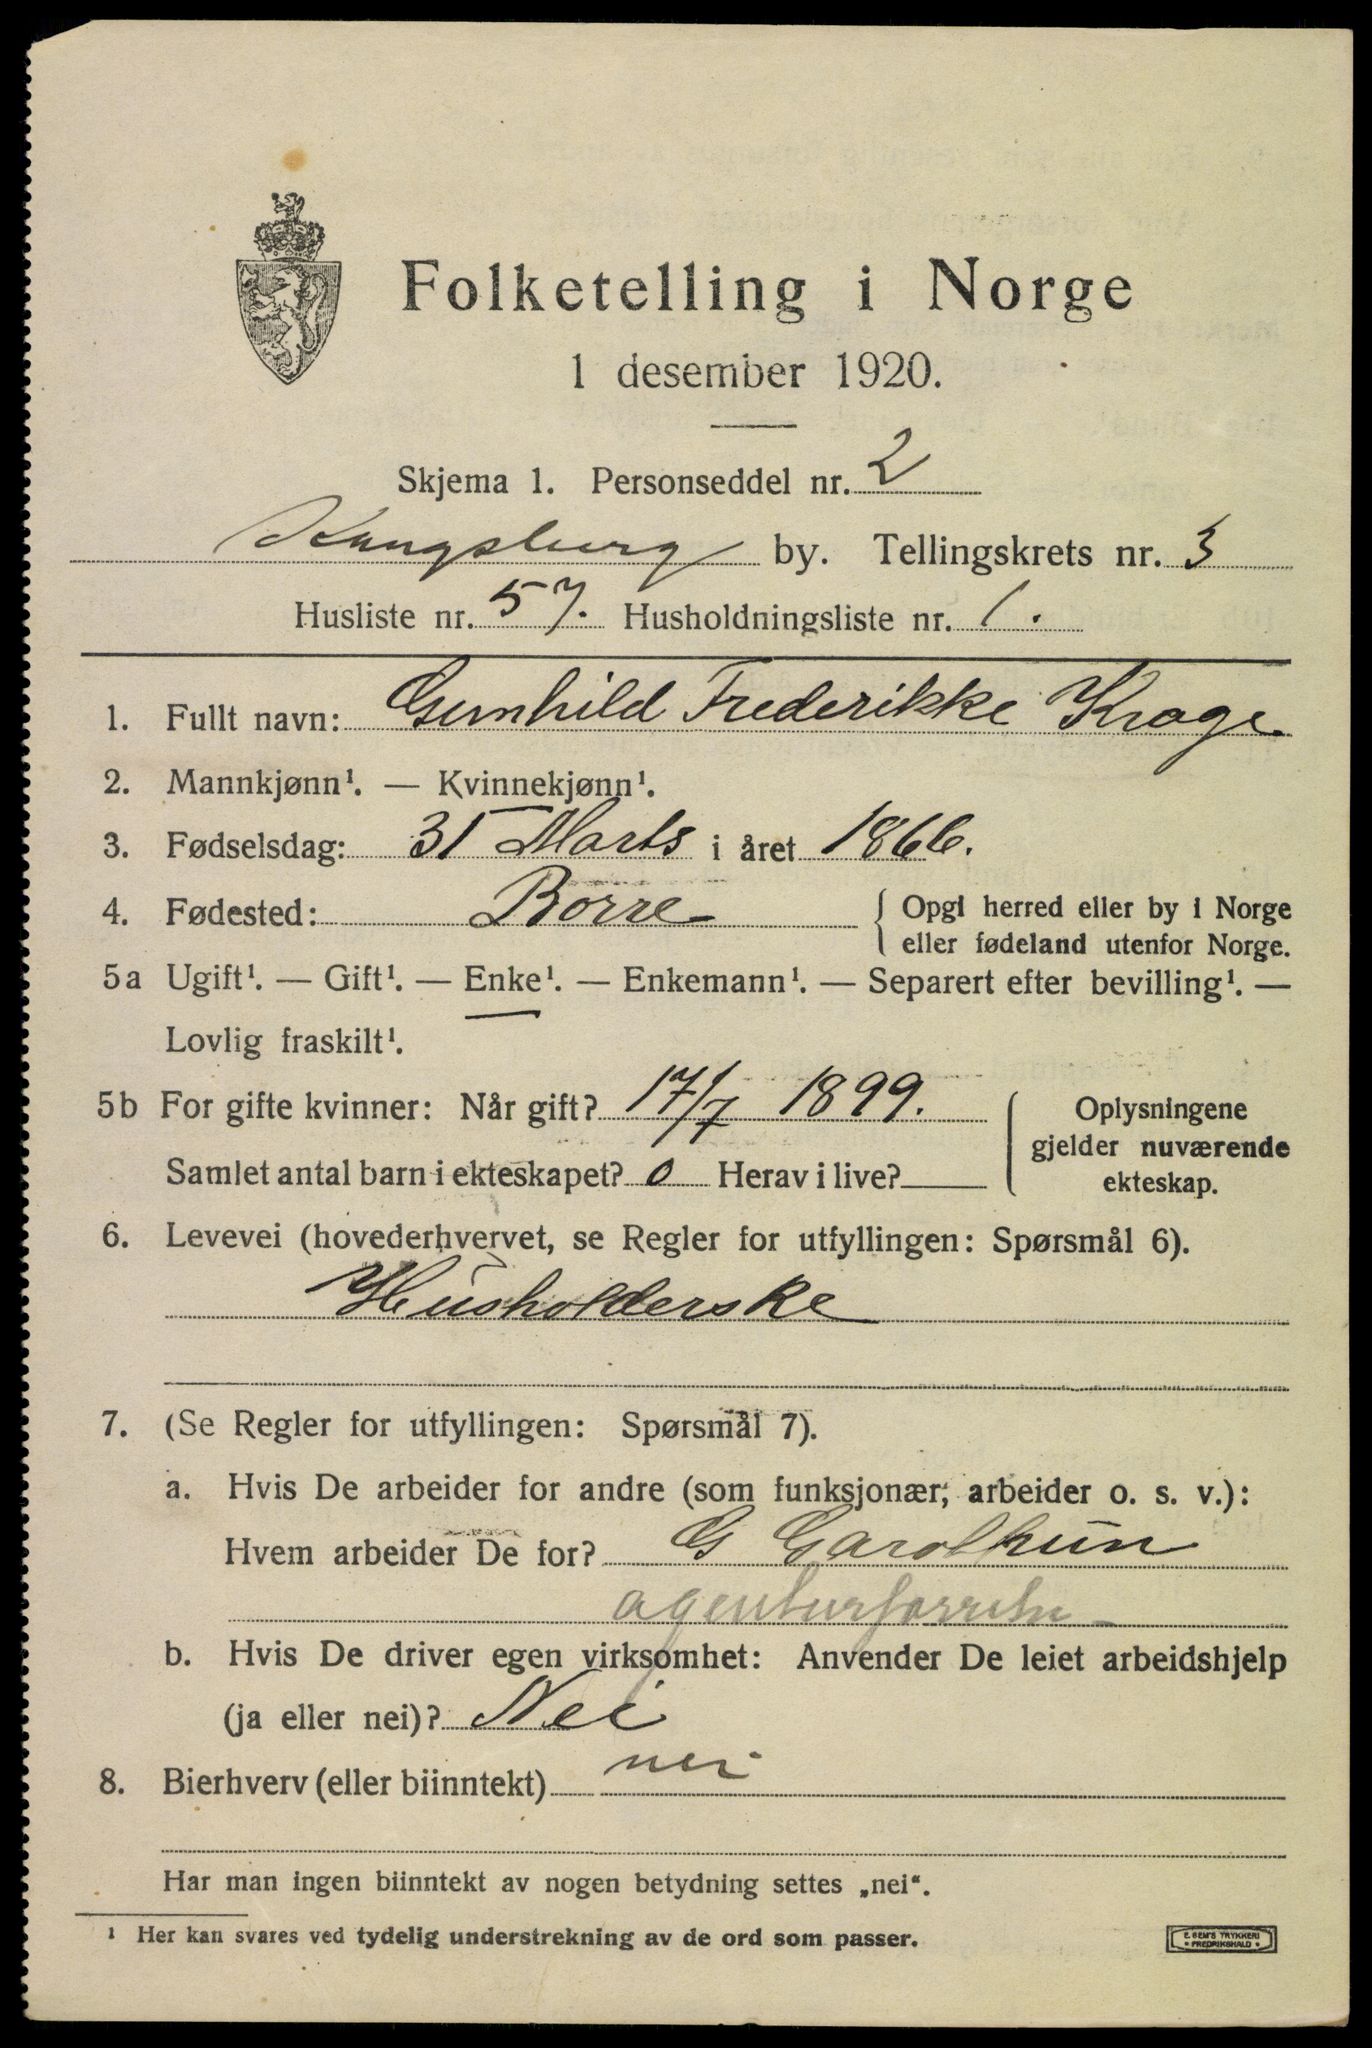 Folketelling i Norge
1 desember 1920.
Skjema 1. Personseddel nr. 2
Kongsberg by. Tellingskrets nr. 3
Husliste nr. 57. Husholdningsliste nr. 1.
1. Fullt navn: Gunhild Frederikke Krage
2. Mannkjønn¹. — Kvinnekjønn¹.
3. Fødselsdag: 31 Marts i året 1866.
4. Fødested: Borre { Opgi herred eller by i Norge
eller fødeland utenfor Norge.
5a Ugift¹. — Gift¹. — Enke¹. — Enkemann¹. — Separert efter bevilling¹. —
Lovlig fraskilt¹.
5b For gifte kvinner: Når gift? 17/7 1899.
Samlet antal barn i ekteskapet? 0 Herav i live?
Oplysningene
gjelder nuværende
ekteskap.
6. Levevei (hovederhvervet, se Regler for utfyllingen: Spørsmål 6).
Husholderske
7. (Se Regler for utfyllingen: Spørsmål 7).
a. Hvis De arbeider for andre (som funksjonær, arbeider o. s. v.):
Hvem arbeider De for? G
agenturforretn
b. Hvis De driver egen virksomhet: Anvender De leiet arbeidshjelp
(ja eller nei)? Nei
8. Bierhverv (eller biinntekt) nei
Har man ingen biinntekt av nogen betydning settes „nei“.
¹ Her kan svares ved tydelig understrekning av de ord som passer.
E. SEM'S TRYKKERI
• FREDRIKSHALD •